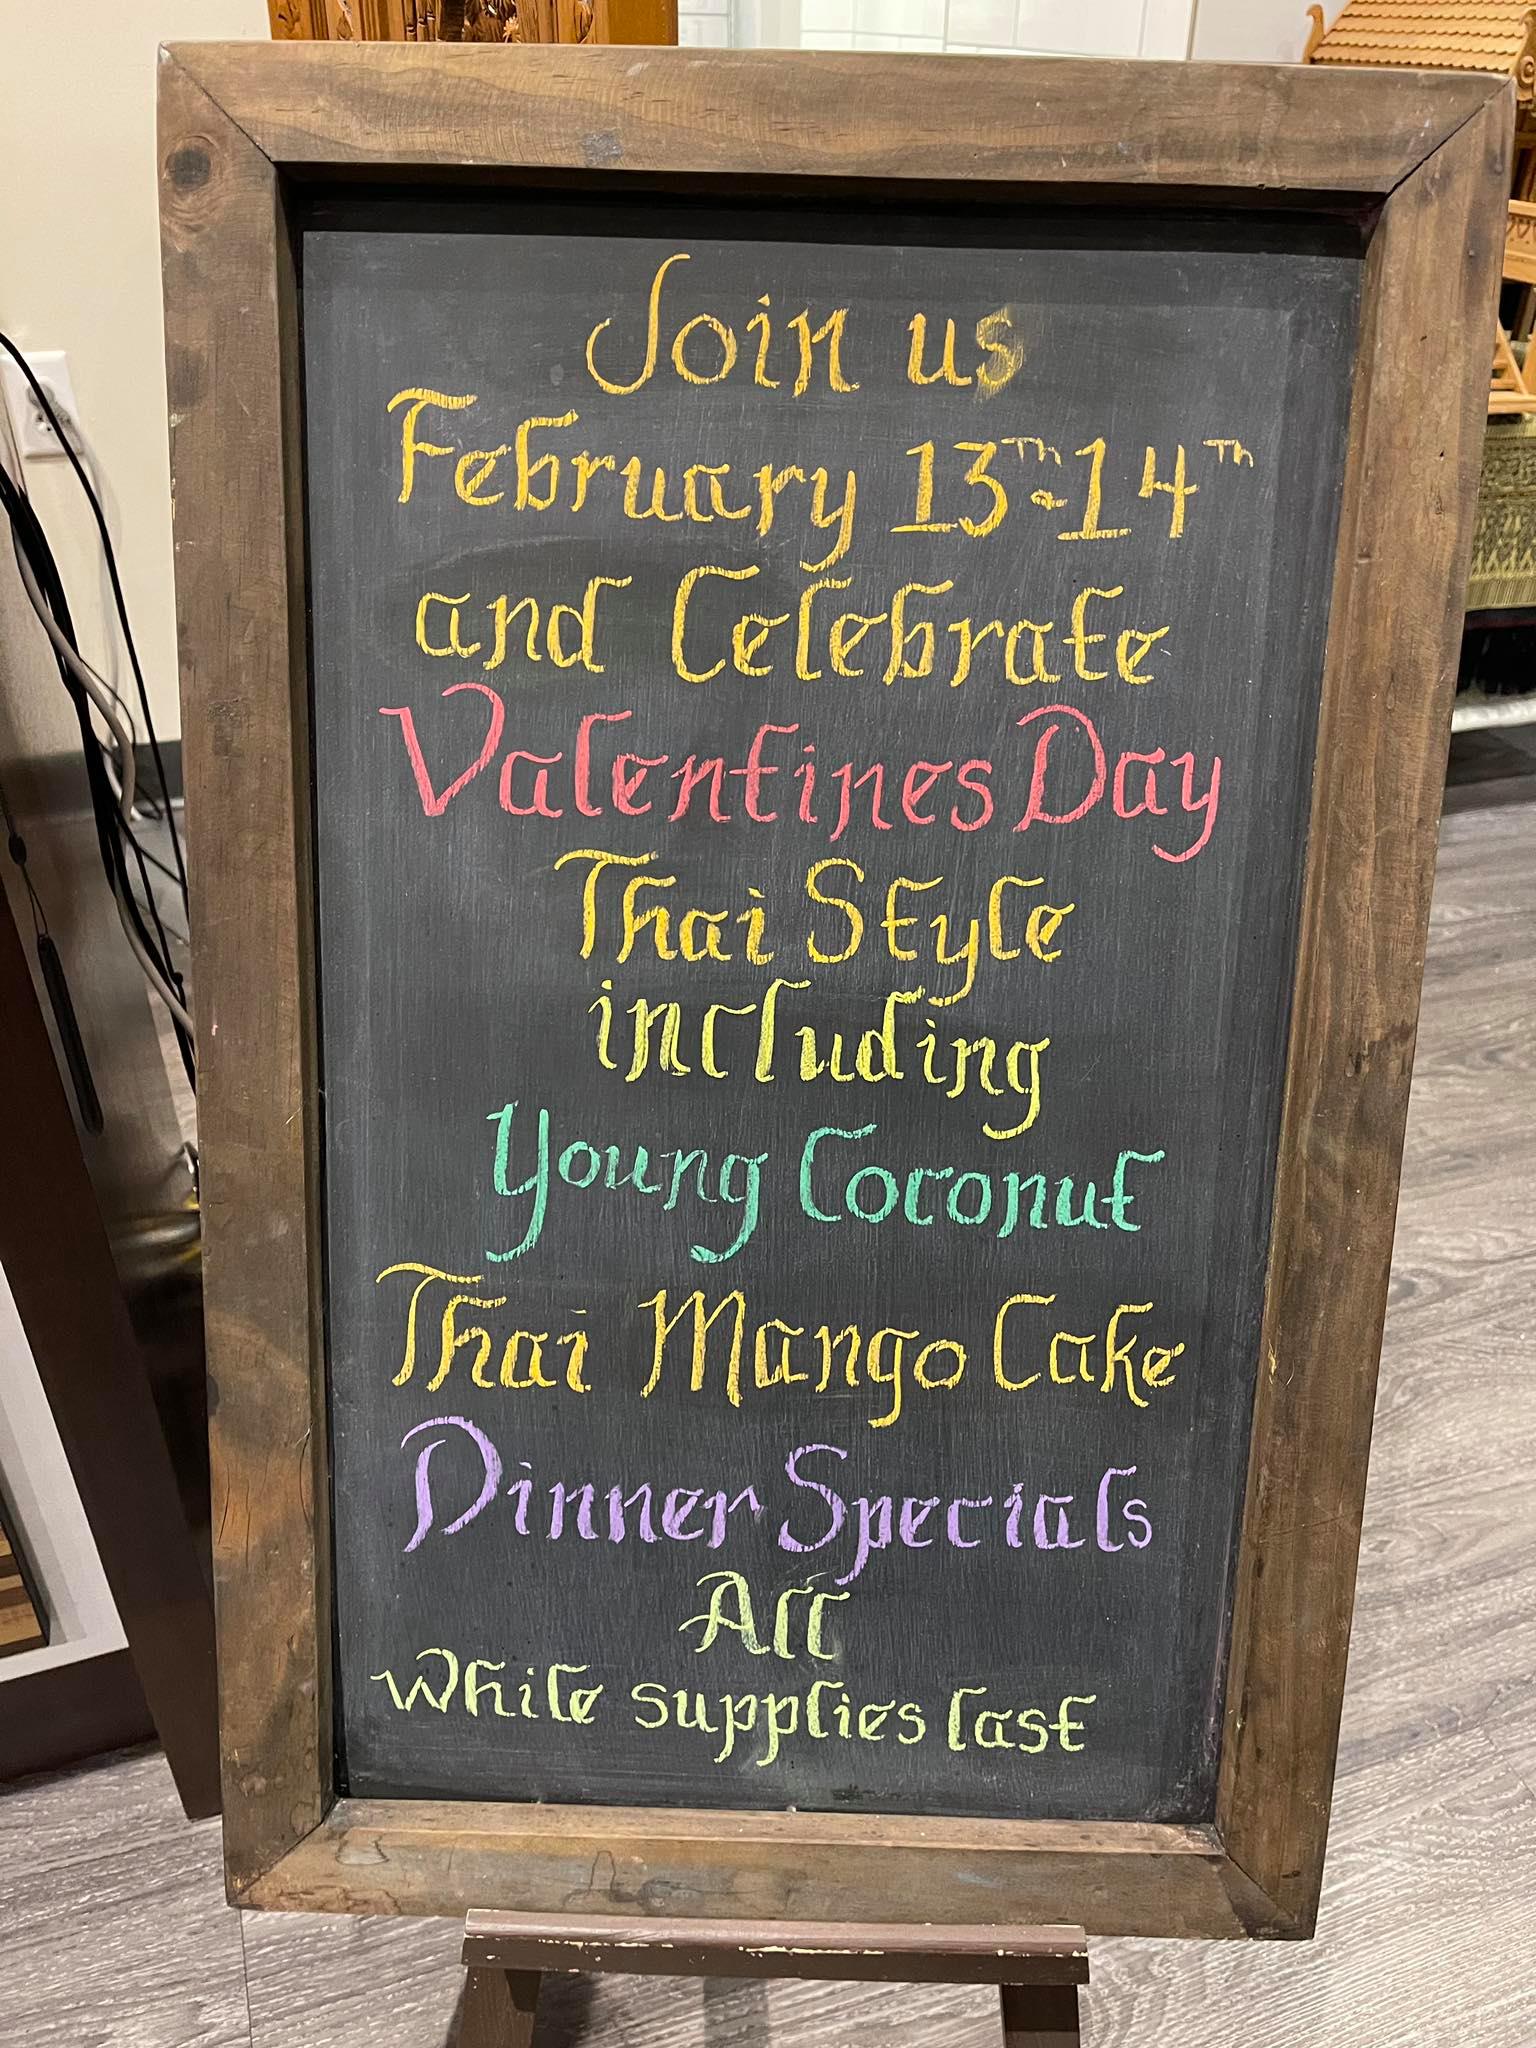 Join us
February 13Th-14Th
and Celebrate
Valentines Day
Thai Style
including
Young Coconut
Thai Mango Cake
Dinner Specials
All
While supplies last